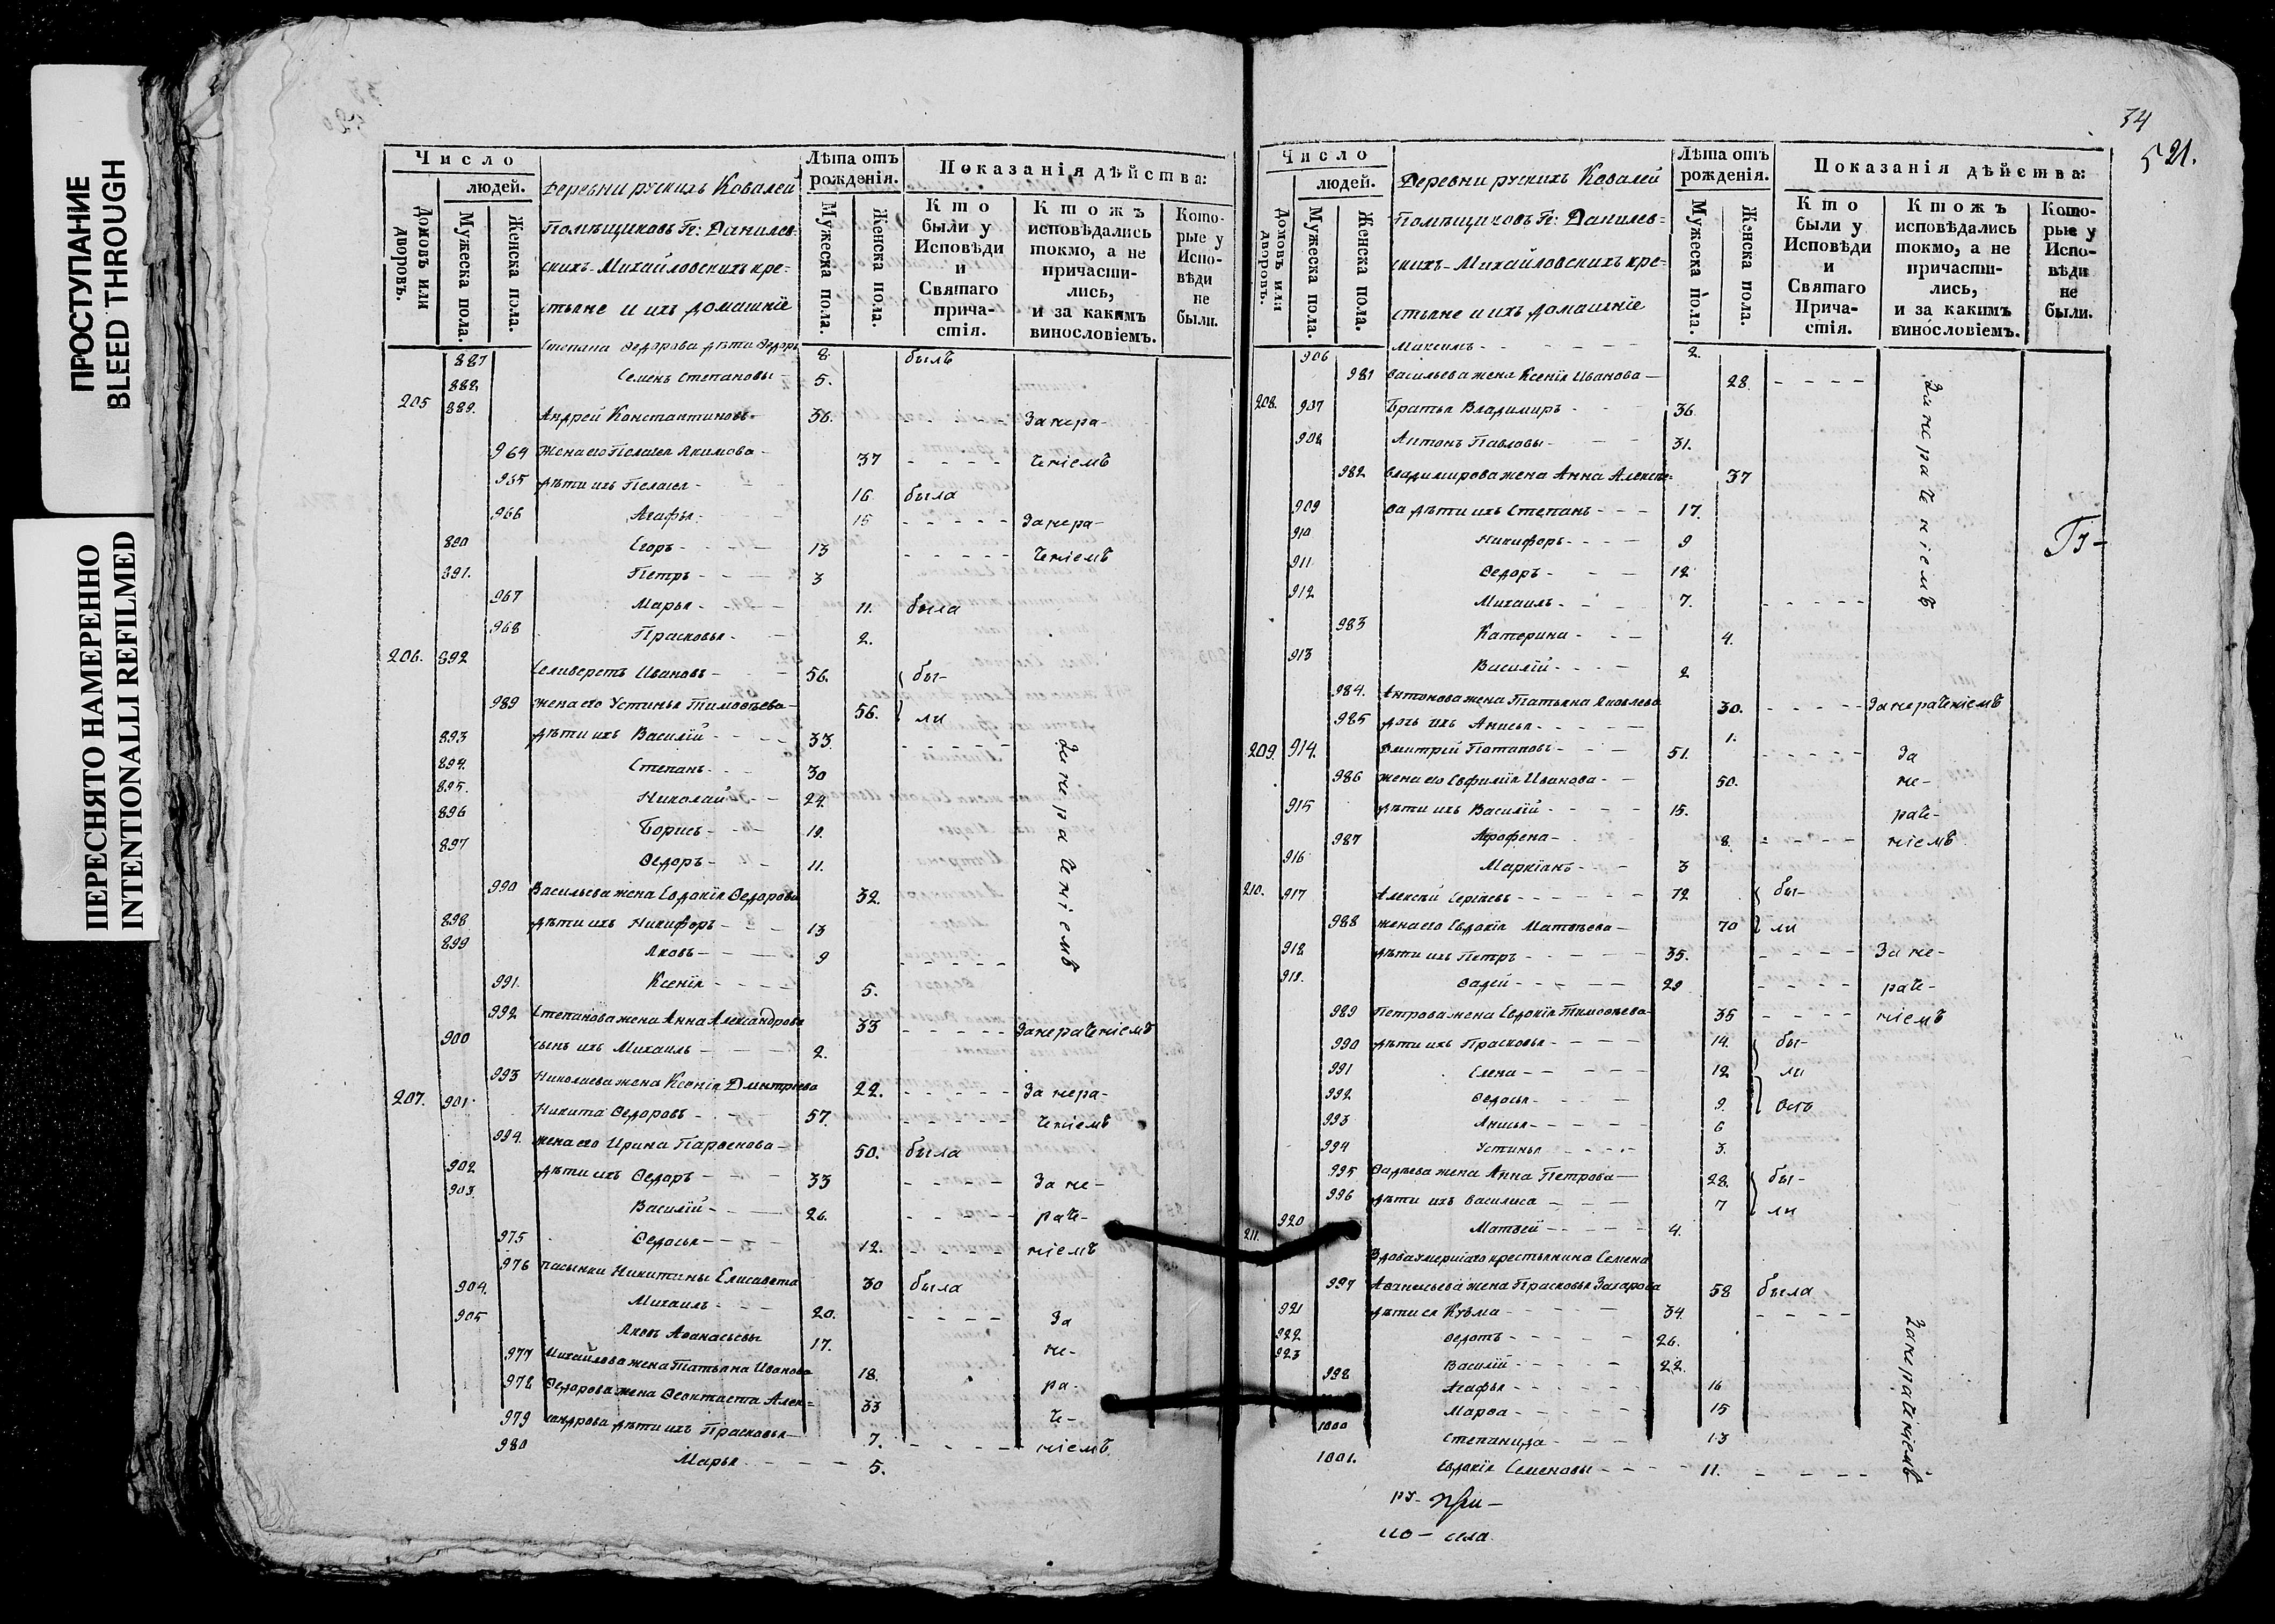 ПРОСТУПАНИЕ
BLEED THROUGH
ПЕРЕСНЯТО НАМЕРЕННО
INTENTIONALLI REFILMED
Число
людей.
Домовъ или дворовъ.
Мужеска пола.
Женска пола.
Деревни рускихъ Ковалей
Помѣщиковъ Гг: Данилев-
скихъ-Михайловскихъ кре-
стьяне и ихъ домашніе
Лѣта отъ рожденія.
Мужеска пола.
Женска пола.
Показанія дѣйства:
Кто были у Исповѣди и Святаго прича-стія.
Ктожъ исповѣдались токмо, а не причасти-лись, и за какимъ винословіемъ.
Кото-рые у Испо-вѣди не были.
887 Степана Ѳедорова дѣти Ѳедоръ 8. былъ
888 Семенъ Степановы 5.
205 889. Андрей Константиновъ 36. За нера-
964 Жена его Пелагея Акимова 37 ченіемъ
965 дѣти ихъ Пелагея 16 была
966 Агафья 15 За нера-
890 Егоръ 13 ченіемъ
891. Петръ 3
967 Марья 11. была
968 Прасковья 2.
206. 892 Селиверстъ Ивановъ 56. бы-
989 жена его Устинья Тимоѳѣева 56. ли
893 дѣти ихъ Василій 33.
894. Степанъ 30
895. Николай 24.
896 Борисъ 19.
897 Ѳедоръ 11.
За нераченіемъ
990 Васильева жена Евдокія Ѳедорова 32.
898 дѣти ихъ Никифоръ 13
899 Яковъ 9
991. Ксенія 5.
992 Степанова жена Анна Александрова 33 За нераченіемъ
900 сынъ ихъ Михаилъ 2.
993 Николаева жена Ксенія Дмитріева 22. За нера-
207. 901 Никита Ѳедоровъ 57. ченіемъ
994. жена его Ирина Парѳенова 50. была
902 дѣти ихъ Ѳедоръ 33 За не-
903. Василій 26. раче-
975 Ѳедосья 12. ніемъ
976 пасынки Никитины Елисавета 30 была
904. Михаилъ 20. За
905 Яковъ Аѳанасьевы 17. не-
977 Михайлова жена Татьяна Иванова 18. ра-
978 Ѳедорова жена Ѳеоктиста Алек- 33 че-
979 сандрова дѣти ихъ Прасковья 7. ніемъ
980 Марья 5.
34
521.
Число
людей.
Домовъ или дворовъ.
Мужеска пола.
Женска пола.
Деревни рускихъ Ковалей
Помѣщиковъ Гг: Данилев-
скихъ-Михайловскихъ кре-
стьяне и ихъ домашніе
Лѣта отъ рожденія.
Мужеска пола.
Женска пола.
Показанія дѣйства:
Кто были у Исповѣди и Святаго Прича-стія.
Ктожъ исповѣдались токмо, а не причасти-лись, и за какимъ винословіемъ.
Кото-рые у Испо-вѣди не были.
906 Максимъ 2.
981 Васильева жена Ксенія Иванова 28.
208. 907 Братья Владимиръ 36.
908 Антонъ Павловы 31.
982 Владимирова жена Анна Алексѣе- 37
909 ва дѣти ихъ Степанъ 17.
910 Никифоръ 9
911 Ѳедоръ 12
912 Михаилъ 7.
За нераченіемъ
983 Катерина 4.
913 Василій 2
984. Антонова жена Татьяна Яковлева 30. За нераченіемъ
985 дочь ихъ Анисья 1.
209. 914. Дмитрій Потаповъ 51. За
986 жена его Евфимія Иванова 50. не-
915 дѣти ихъ Василій 15. раче-
987 Агрофена 8. ніемъ
916 Маркіанъ 3
210. 917 Алексѣй Сергѣевъ 72 бы-
988 жена его Евдокія Матвѣева 70 ли
918 дѣти ихъ Петръ 35. За не-
919. Фадей 29 раче-
989 Петрова жена Евдокія Тимоѳѣева 35 ніемъ
990 дѣти ихъ Прасковья 14. бы-
991 Елена 12 ли
992 Ѳедосья 9.
993 Анисья 6
994 Устинья 3.
995 Фадѣева жена Анна Петрова 28. бы-
996 дѣти ихъ Василиса 7 ли
920 Матвѣй 4.
211. Вдова умершаго крестьянина Семена
997 Аѳанасьева жена Прасковья Захарова 58 была
921 дѣти ея Кузма 34.
922 Ѳедотъ 26.
923 Василій 22.
998 Агафья 16
Марѳа 15
1000 Степанида 13
1001. Евдокія Семеновы 11.
За нераченіемъ
Гг-
ру- при-
села